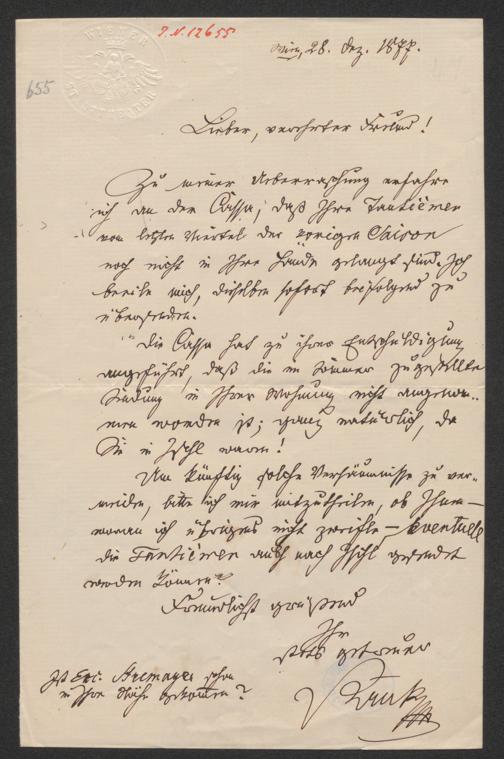 WIENER
STADTTHEATER
I.N. 12655
655
Wien, 28. Dez. 1877.
Lieber, verehrter Freund!
Zu meiner Ueberraschung erfahre
ich an der Cassa, daß Ihre Tantièmen
vom letzten Viertel der vorigen Saison
noch nicht in Ihre Hände gelangt sind. Ich
beeile mich, dieselben sofort beifolgend zu
übersenden.
Die Cassa hat zu ihrer Entschuldigung
angeführt, daß die im Sommer zugestellte
Sendung in Ihrer Wohnung nicht angenom-
men worden ist; ganz natürlich, da
Sie in Ischl waren!
Um künftig solche Versäumnisse zu ver-
meiden, bitte ich mir mitzutheilen, ob Ihnen —
woran ich übrigens nicht zweifle — eventuelle
die Tantièmen auch nach Ischl gesendet
werden können?
Freundlichst grüßend
Ihr
stets getreuer
Ist schon
in Ihre Nähe gekommen?